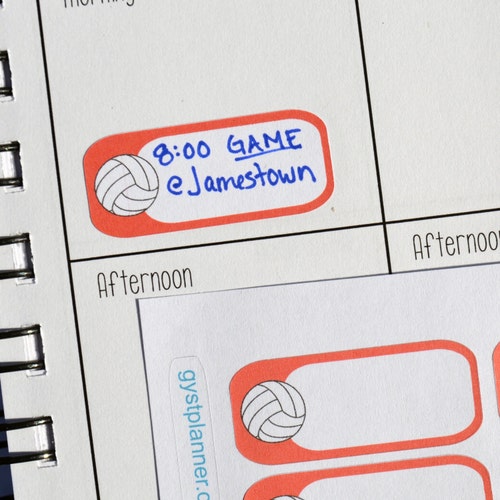 Morning
8:00 GAME
@Jamestown
Afternoon
Afternoo
gystplanner.c